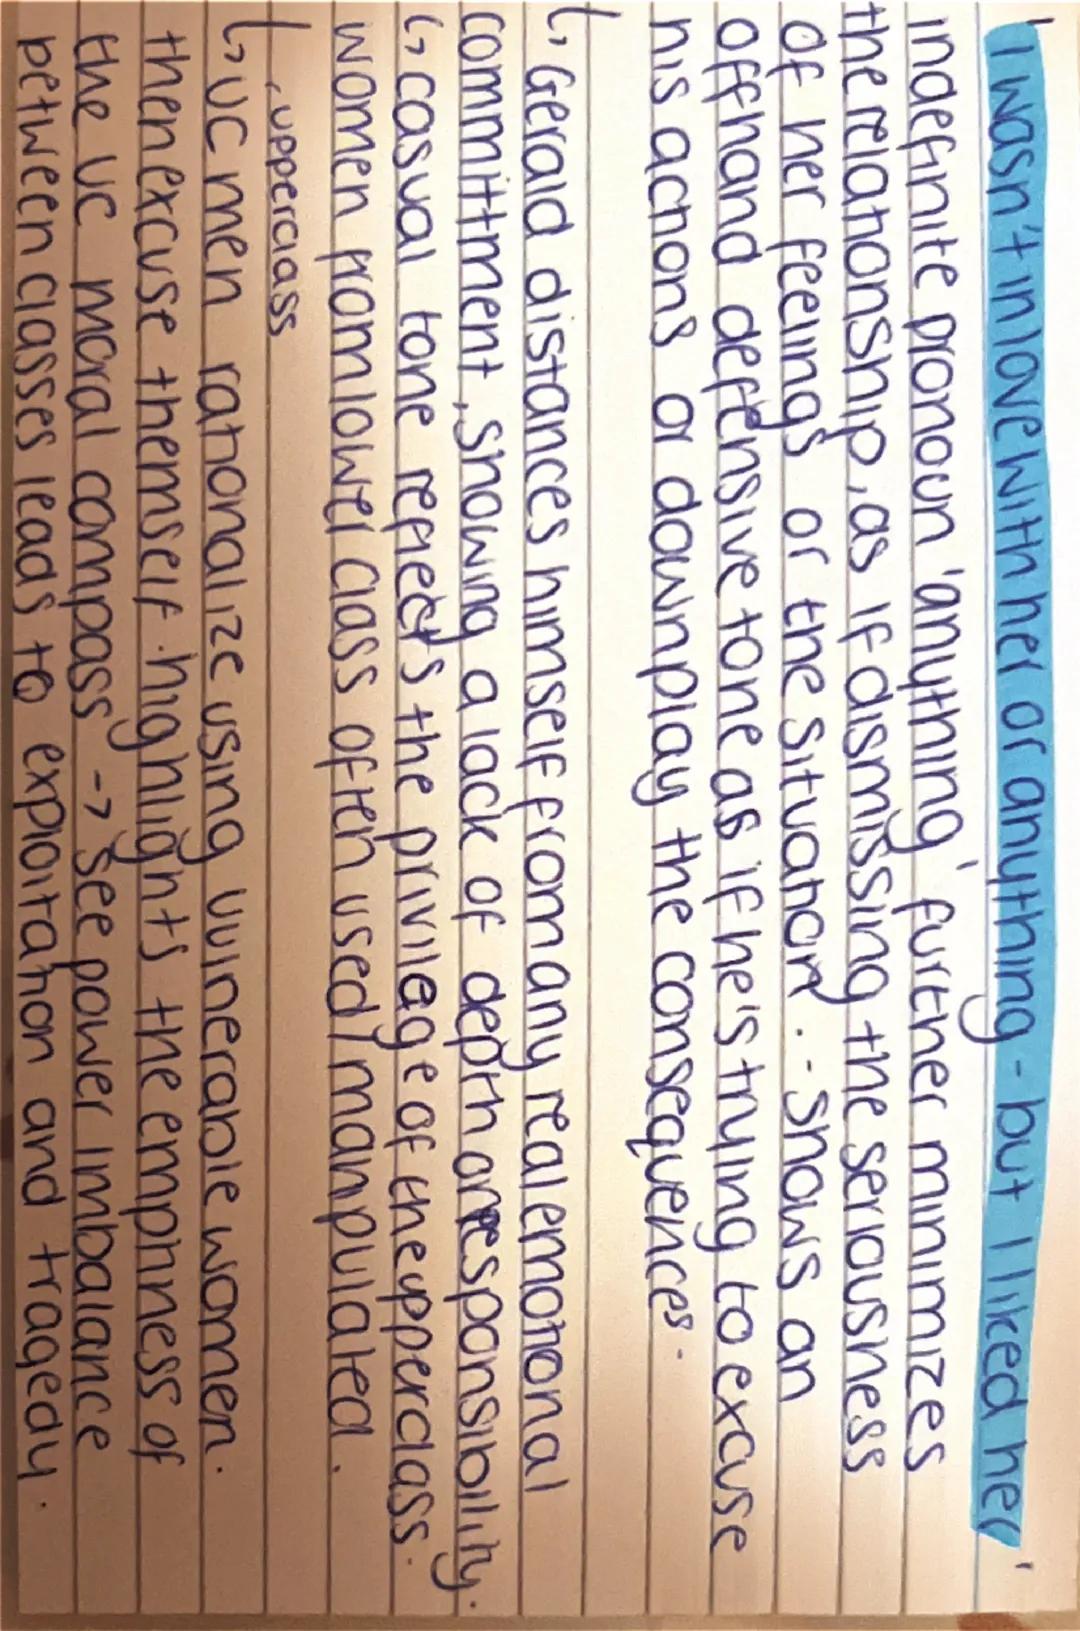 'I wasn't in love with her or anything - but I liked her'
indefinite pronoun 'anything' further minimizes
the relationship, as if dismissing the seriousness
of her feelings or the situation. - Shows an
offhand defensive tone as if he's trying to excuse
his actions or downplay the consequences.
↳ Gerald distances himself from any real emotional
committment, showing a lack of depth or responsibility.
↳ casual tone reflects the privilege of the upperclass.
women from lower class often used/manipulated.
upperclass
↳ UC men rationalize using vulnerable women.
then excuse themself. highlights the emptiness of
the UC moral compass -> see power imbalance
between classes leads to exploitation and tragedy.